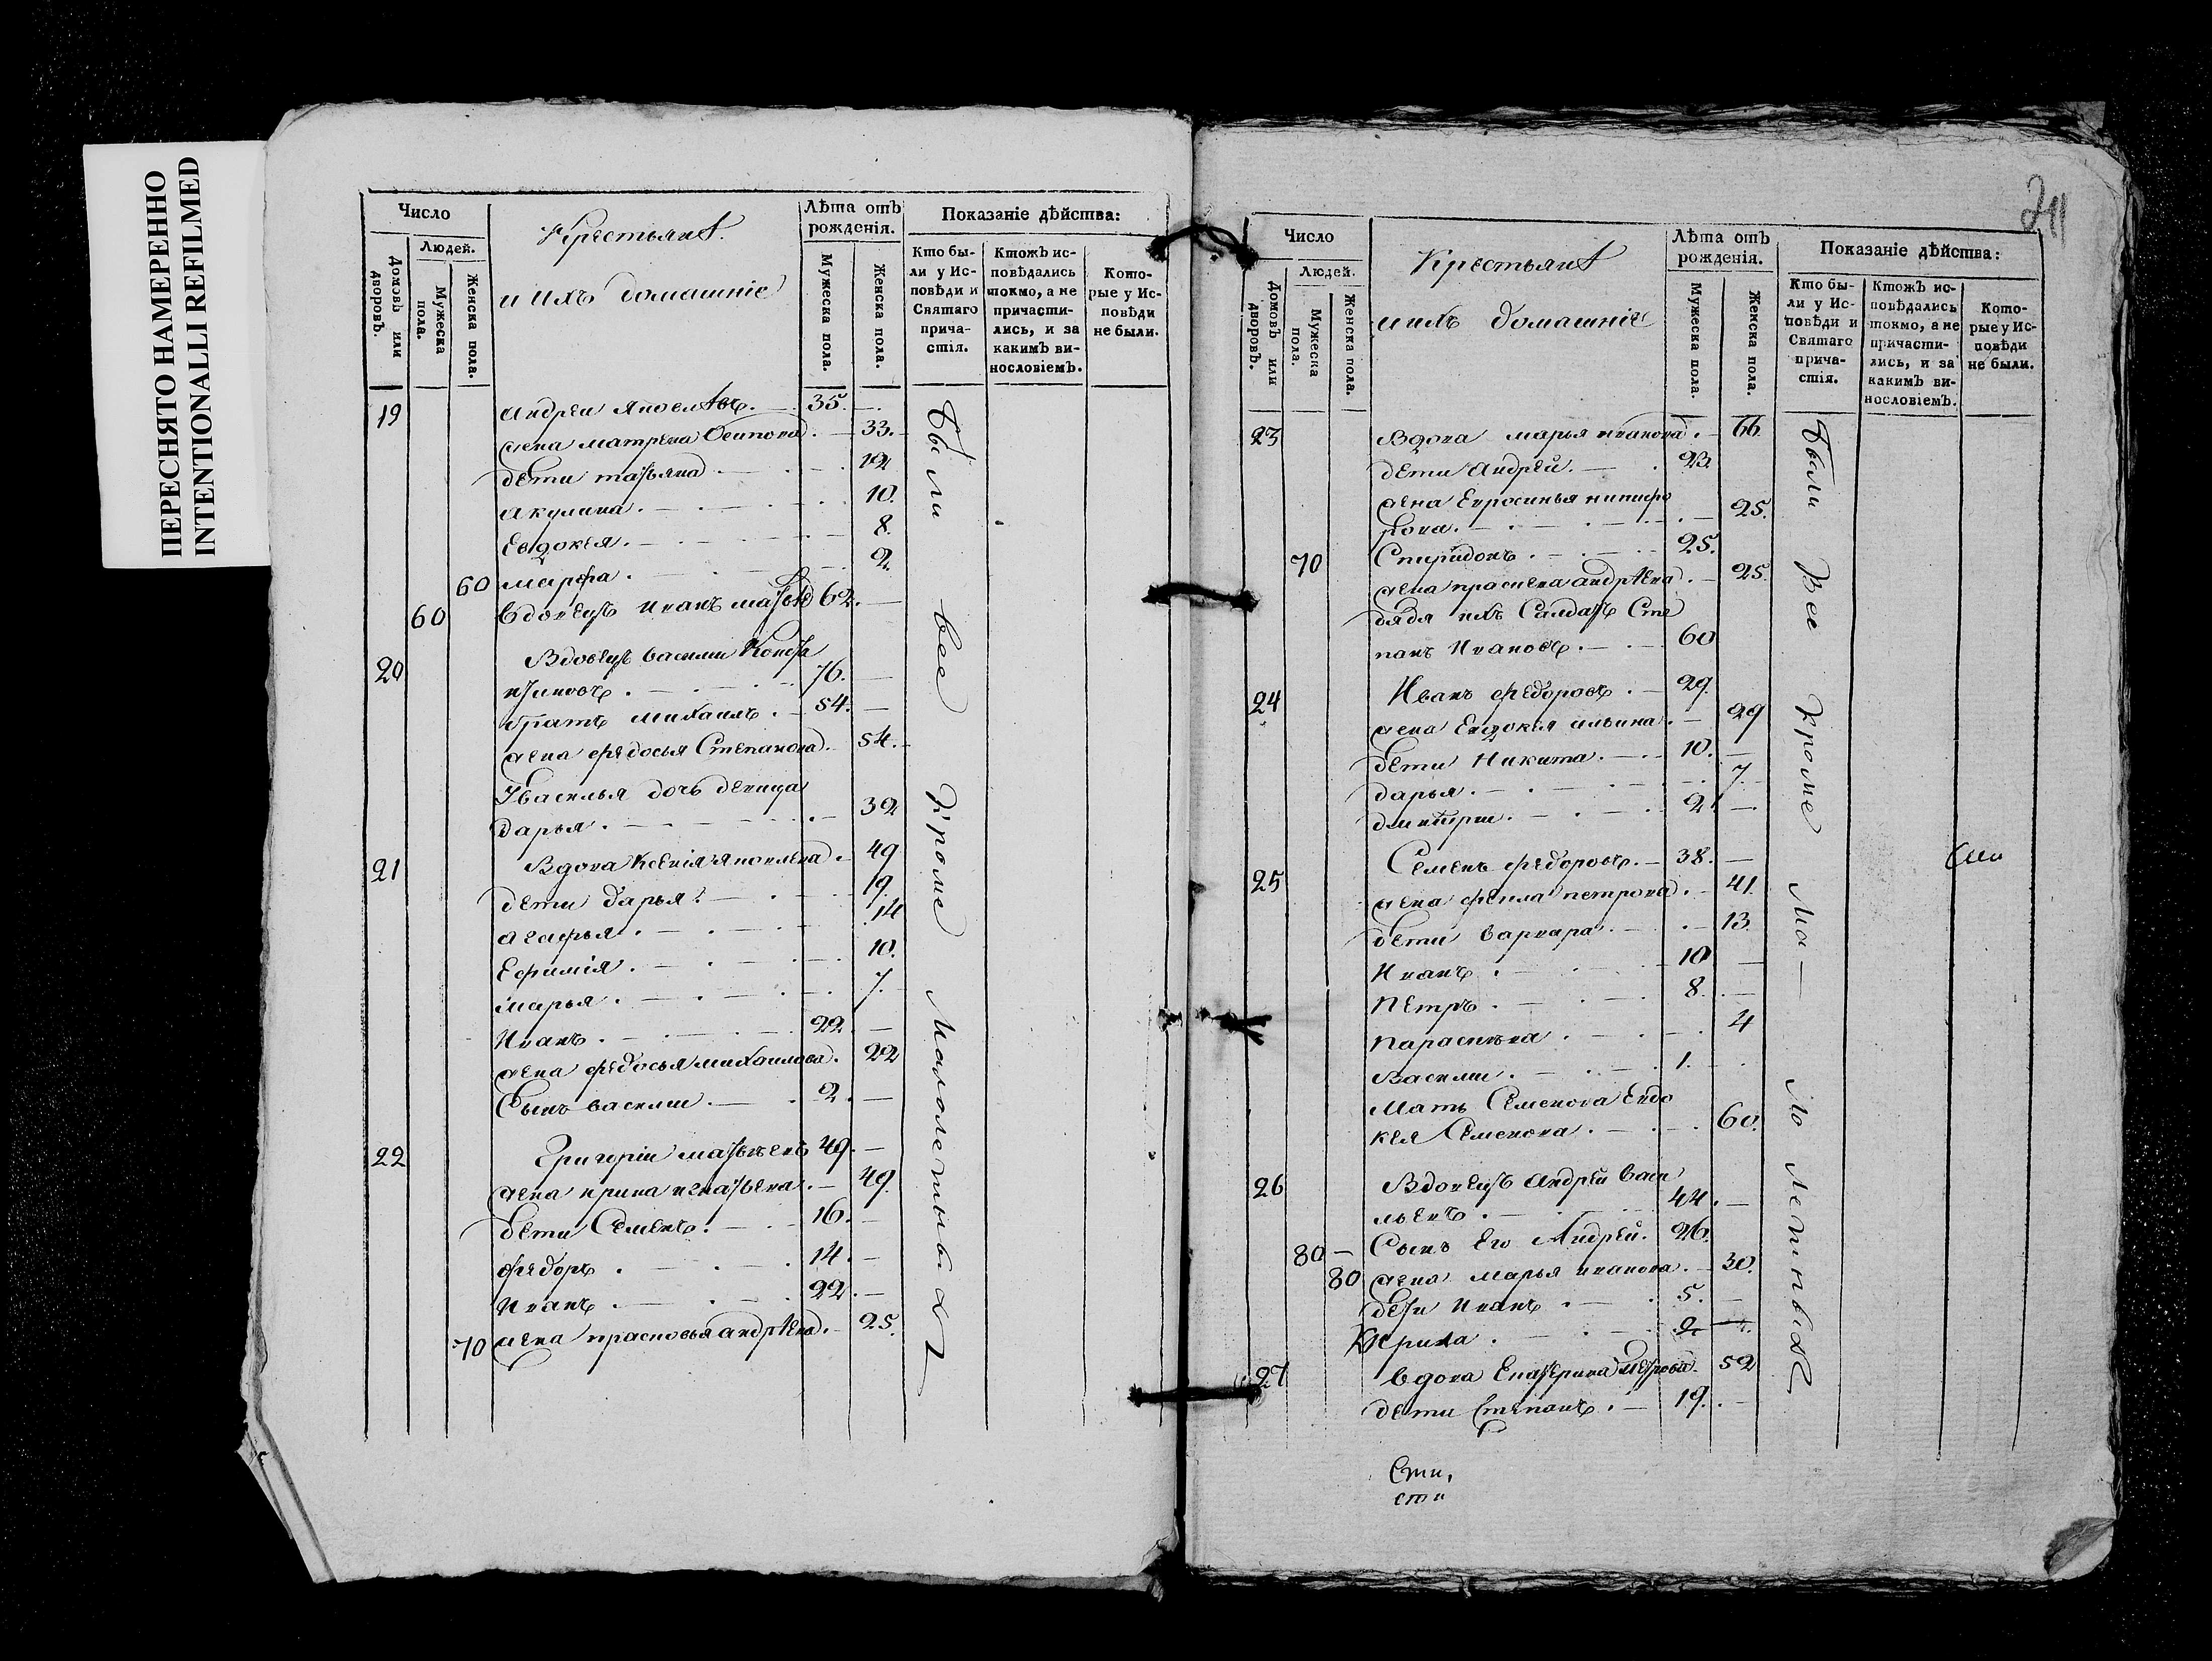 ПЕРЕСНЯТО НАМЕРЕННО
INTENTIONALLI REFILMED
Число
Людей.
Домовъ или дворовъ.
Мужеска пола.
Женска пола.
Крестьянѣ
и ихъ домашніе
Лѣта отъ рожденія.
Мужеска пола.
Женска пола.
Показаніе дѣйства:
Кто были у Исповѣди и Святаго причастія.
Ктожъ исповѣдались токмо, а не причастились, и за какимъ винословіемъ.
Которые у Исповѣди не были.
19 Андреи Яковлевъ. 35.
жена матрена Осипова. 33.
дети татьяна 12
Акулина. 10.
Евдокея. 8.
60 марфа. 2.
60 вдовецъ иванъ 62.
20 Вдовецъ василии Конста
нтиновъ. 76.
братъ михаилъ. 54.
жена федосья Степанова. 54.
У василья дочь девица
дарья. 32
21 Вдова Ксенія Яковлева. 49
дети дарья. 19.
агафья. 14
Ефимія. 10.
марья. 7.
Иванъ. 22.
жена федосья михаилова. 22
Сынъ василии. 2.
22 Григоріи матвеевъ 49.
жена ирина игнатьева. 49.
дети Семенъ. 16.
федоръ. 14.
Иванъ. 22.
70 жена прасковья андрѣева. 25.
были все кроме малолетныхъ
211
Число
Людей.
Домовъ или дворовъ.
Мужеска пола.
Женска пола.
Крестьянѣ
и ихъ домашніе
Лѣта отъ рожденія.
Мужеска пола.
Женска пола.
Показаніе дѣйства:
Кто были у Исповѣди и Святаго причастія.
Ктожъ исповѣдались токмо, а не причастились, и за какимъ винословіемъ.
Которые у Исповѣди не были.
23 Вдова марья иванова. 66.
дети Андрей. 23.
жена Евросинья никифо
рова. 25.
70 Спиридонъ. 25.
жена андрѣева. 25.
дядя ихъ Салдатъ Сте
панъ Ивановъ. 60
24 Иванъ федоровъ. 29.
жена Евдокея ильина. 29
дети Никита. 10.
дарья. 7.
дмитрии. 2
25 Семенъ федоровъ. 38.
жена фекла петрова. 41.
дети варвара. 13.
Иванъ. 10
Петръ. 8.
Парасковa. 4
Василии. 1.
Мать Семенова Евдо
кея Семенова. 60.
26 Вдовецъ Андреи васи
льевъ. 44.
80 Сынъ Его Андрей. 26.
80 жена марья иванова. 30.
дети Иванъ. 5.
Кирила. 2.
27 вдова Екатерина Петрова. 52
дети Степанъ. 19.
были Все кроме Ма— ло летныхъ
Сти,
сти